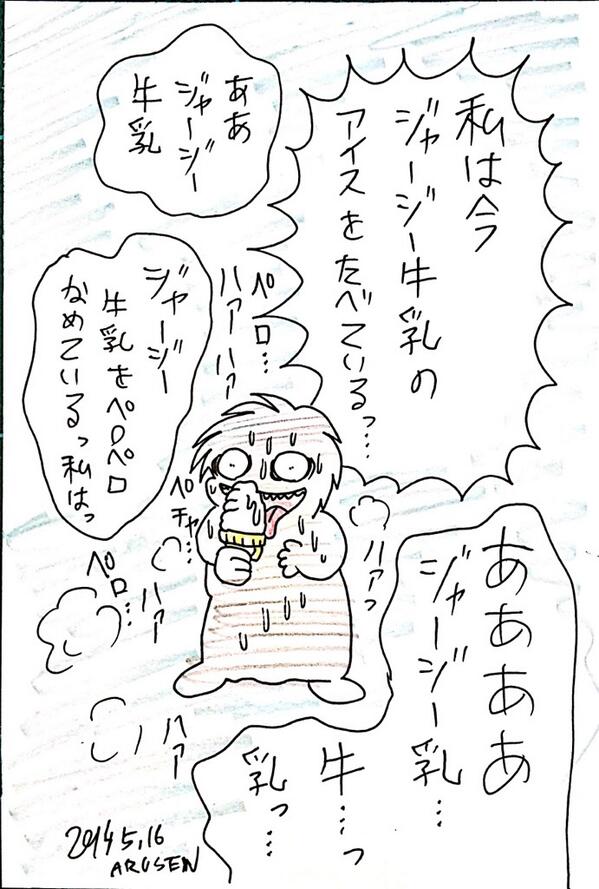 私は今
ジャージー牛乳の
アイスをたべているっ…
ああ
ジャージー
牛乳
ペロ…
ハァハァ
ジャージー
牛乳をペロペロ
なめているっ私はっ
ペチャ…
ハァっ
ペロ…
ハァ
ハァ
ああああ
ジャージー乳…
牛…っ
乳っ…
2014 5,16
ARUSEN